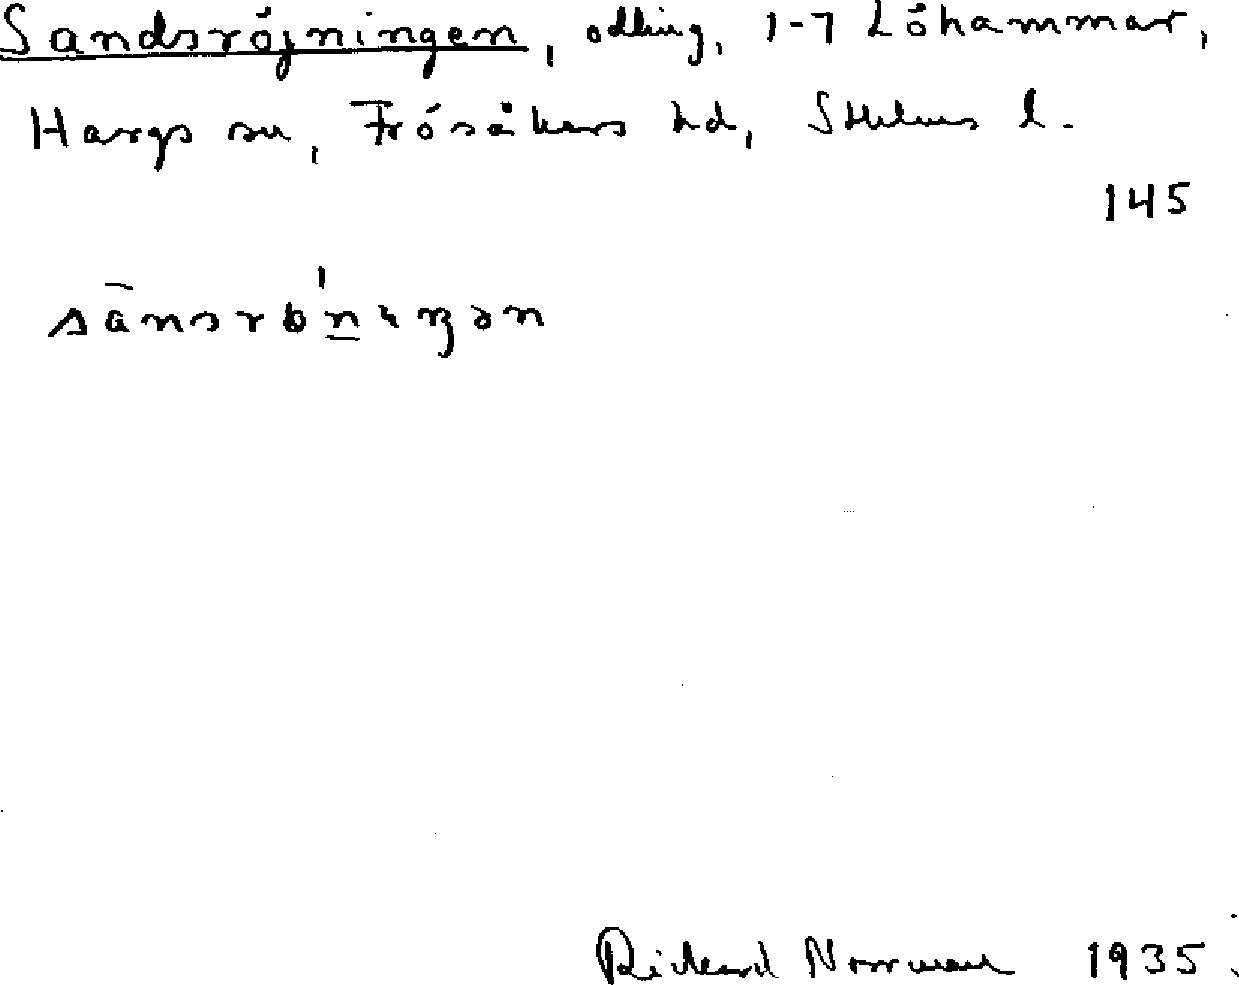 Sandsröjningen, odling, 1-7 Löhammar,
Hargs sn, Frösåkers hd, Sthlms l.
145
Rickard Norrman 1935.